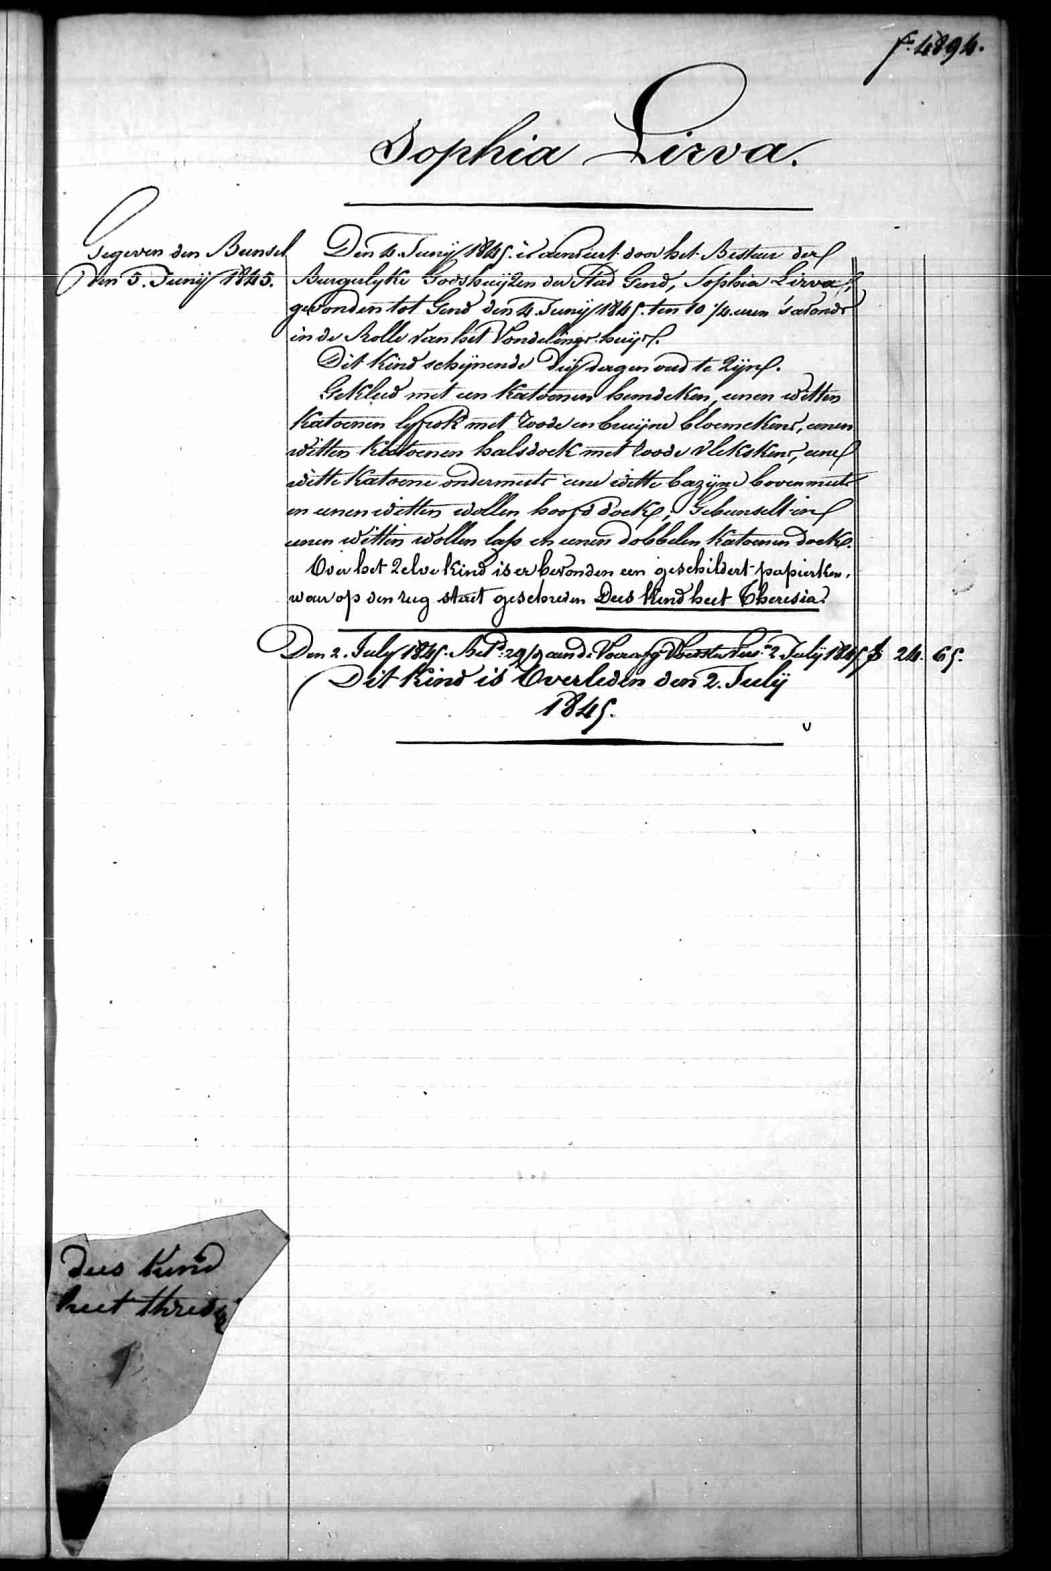 f. 4894.
Sophia Lirva.
Gegeven den Bunsel
Den 5. Junij 1845.
Den 4. Junij 1845. is aenveert door het Bestuer der
Burgerlyke Godshuijzen der Stad Gend, Sophia Lirva,
gevonden tot Gend den 4. Junij 1845. ten 10 1/4. uren 's avonds
in de Rolle van het Vondelings-huijs.
Dit Kind schijnende Drij dagen oud te Zijn.
Gekleed met een Katoenen hemdeken, eenen witten
Katoenen lyfrok met roode en bruijne bloemekens, eenen
witten Katoenen halsdoek met roode vlekskens, eene
witte Katoene ondermuts eene witte bazijne bovenmuts
en eenen witten wollen hoofddoek, Gebunselt in
eenen witten wollen lap en eenen dobbelen Katoenen doek.
Over het Zelve Kind is er bevonden een geschildert papierken,
waer op den rug staet geschreven Dees Kind heet Theresia.
Den 2. July 1845. Betd. 29/9 aen de 2 July 1845 f 24. 65.
Dit Kind is Overleden den 2. Julij
1845.
dees kind
heet thresia